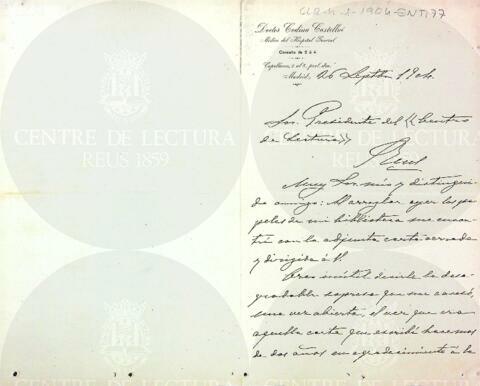 CLR-M-1-1904-ENT177
Doctor Codina Castellví
Médico del Hospital General
Consulta de 2 á 4
Capellanes, 2 al 8, pral. dra.
Madrid, 26 Septbre 1904
Sor. Presidente del "Centro
de Lectura"
Reus
Muy Sor. mío y distingui
do amigo: Al arreglar ayer los pa
peles de mi biblioteca me encon
tré con la adjunta carta cerrada
y dirigida á V.
Creo inútil decirle la desa
gradable sorpresa que me causó,
una vez abierta, el ver que era
aquella carta que escribí hace mas
de dos años en agradecimiento á la
CENTRE DE LECTURA
REUS 1859